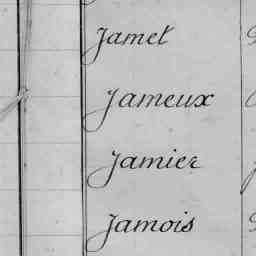 Jamet
Jameux
Jamier
Jamois